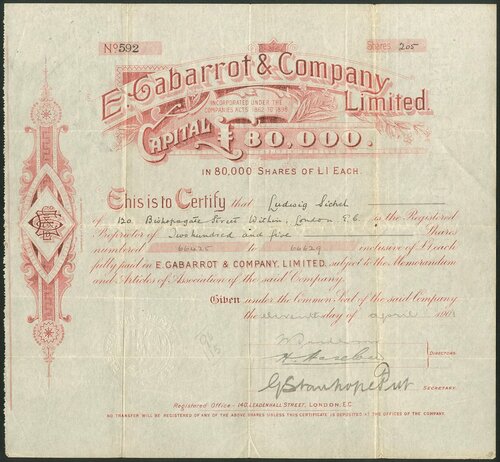 No 592
Shares 205
E. Gabarrot & Company
Limited.
INCORPORATED UNDER THE
COMPANIES ACTS 1862 TO 1898
CAPITAL £80,000.
IN 80,000 SHARES OF £1 EACH.
This is to Certify that Ludwig Sichel
of 120 Bishopsgate Street Within, London E.C. is the Registered
Proprietor of Two hundred and five Shares
numbered 66425 to 66629 inclusive of £1 each
fully paid in E. GABARROT & COMPANY, LIMITED. subject to the Memorandum
and Articles of Association of the said Company.
Given under the Common Seal of the said Company
the eleventh day of april 190
DIRECTORS.
SECRETARY.
Registered Office - 140, LEADENHALL STREET, LONDON, E.C.
NO TRANSFER WILL BE REGISTERED OF ANY OF THE ABOVE SHARES UNLESS THIS CERTIFICATE IS DEPOSITED AT THE OFFICES OF THE COMPANY.